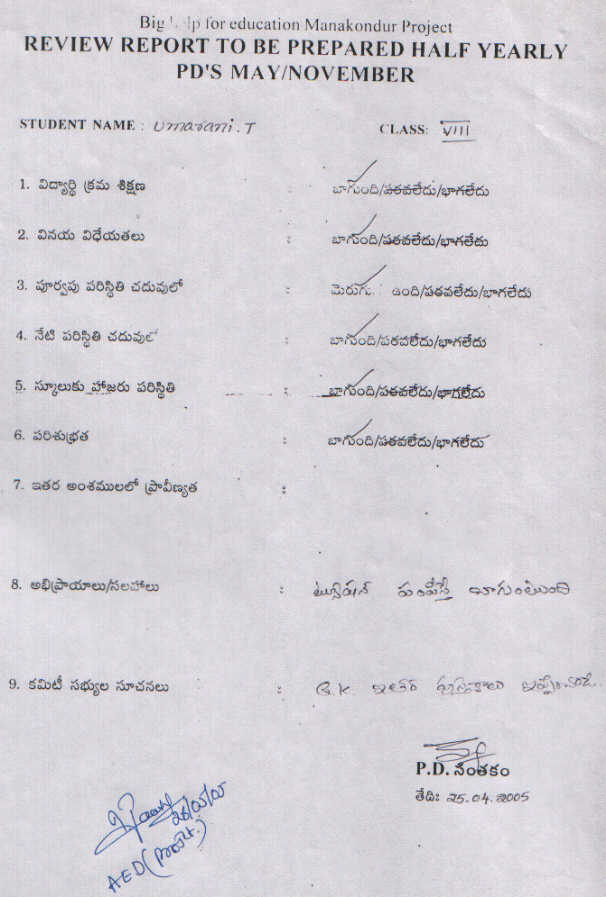 Big Help for education Manakondur Project
REVIEW REPORT TO BE PREPARED HALF YEARLY
PD'S MAY/NOVEMBER
STUDENT NAME : Umarani.T CLASS: VIII
1. విద్యార్థి క్రమ శిక్షణ : బాగుంది/పరవలేదు/భాగలేదు
2. వినయ విధేయతలు : బాగుంది/పరవలేదు/భాగలేదు
3. పూర్వపు పరిస్థితి చదువులో : మెరుగు ఉంది/పరవలేదు/భాగలేదు
4. నేటి పరిస్థితి చదువులో : బాగుంది/పరవలేదు/భాగలేదు
5. స్కూలుకు హాజరు పరిస్థితి : బాగుంది/పరవలేదు/భాగలేదు
6. పరిశుభ్రత : బాగుంది/పరవలేదు/భాగలేదు
7. ఇతర అంశములలో ప్రావీణ్యత :
8. అభిప్రాయాలు/సలహాలు : ట్యూషన్ పంపిస్తే బాగుంటుంది
9. కమిటీ సభ్యుల సూచనలు : G.K. ఇతర పుస్తకాలు
P.D. సంతకం
తేది: 25.04.2005
AED